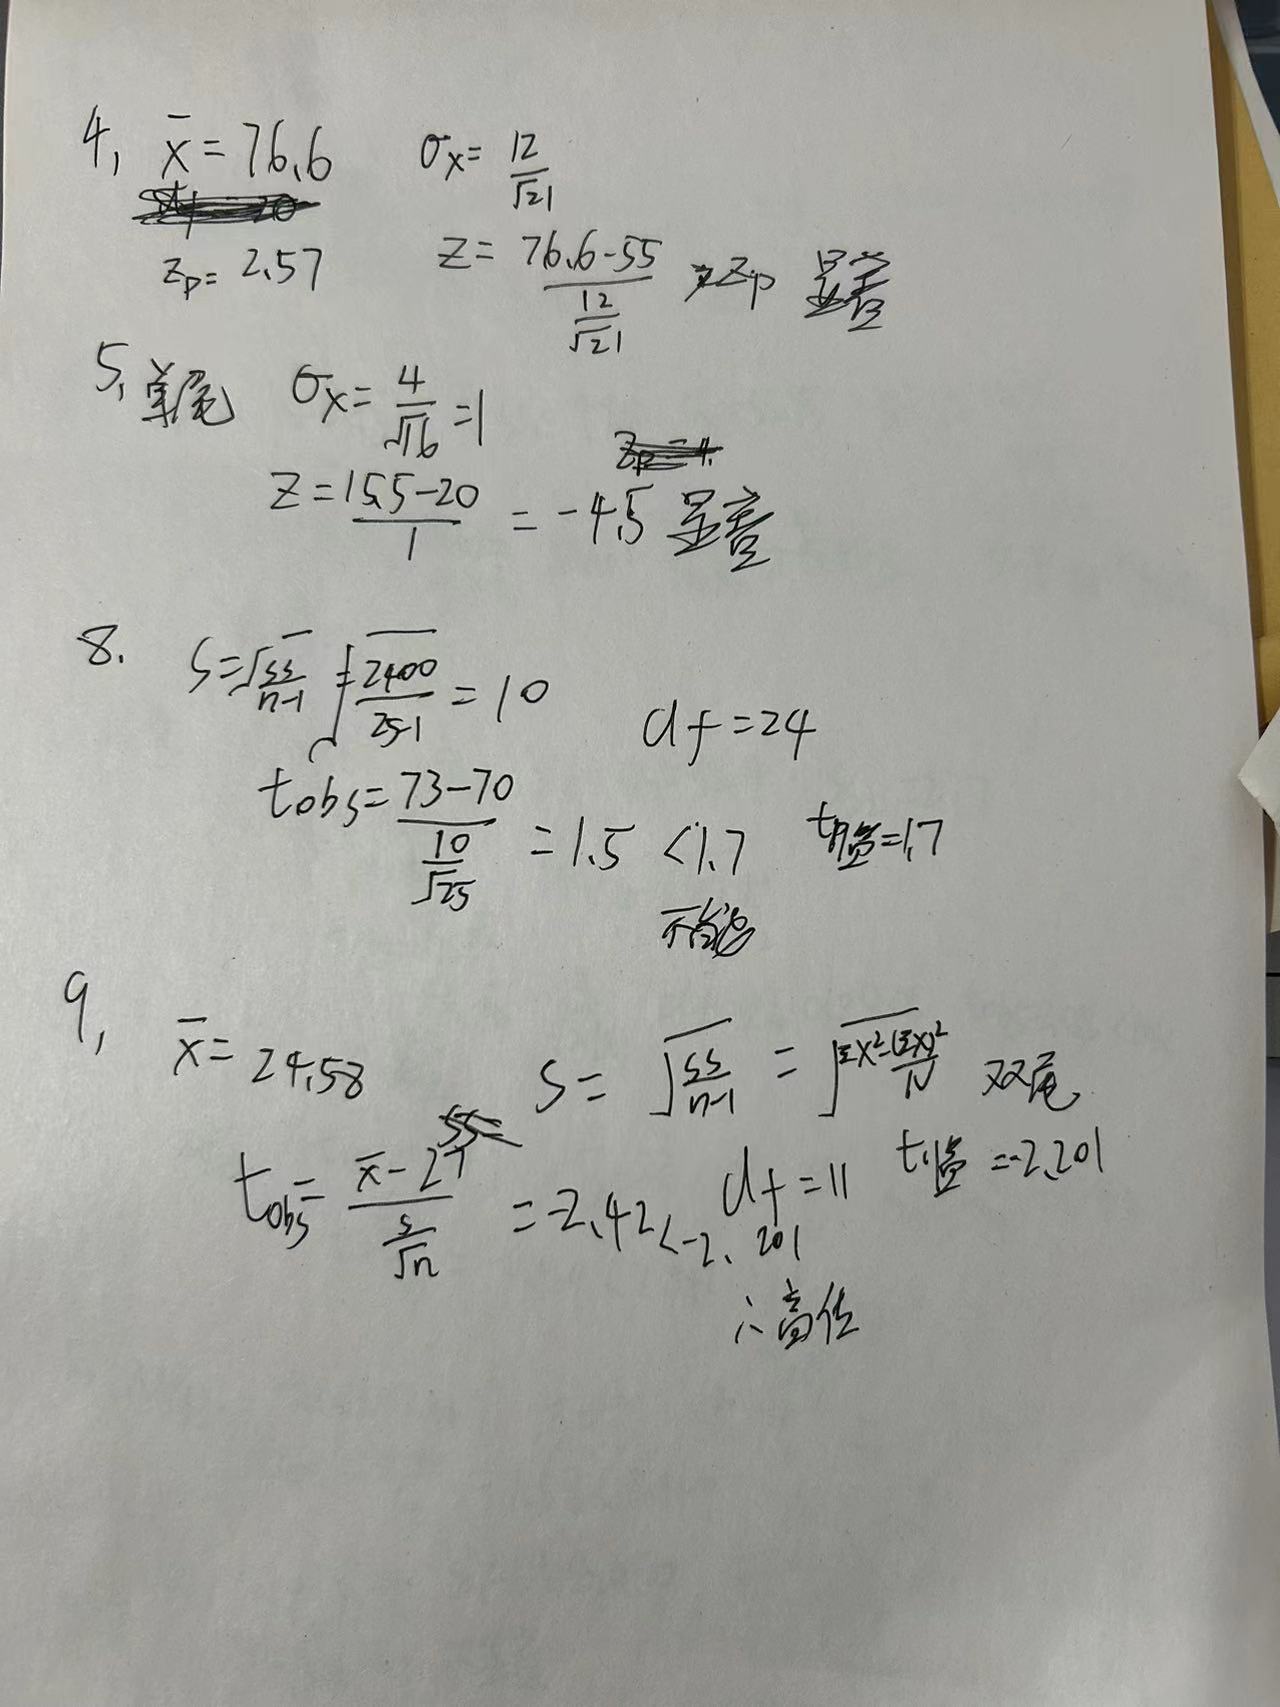 4, x̄ = 76.6 σx = 12/√21
Zp = 2.57 Z = (76.6-55)/(12/√21) > Zp 显著
5, 单尾 σx = 4/√16 = 1
Z = (15.5-20)/1 = -4.5 显著
8. S = √(SS/(n-1)) = √(2400/(25-1)) = 10
df = 24
tobs = (73-70)/(10/√25) = 1.5 < 1.7 t临 = 1.7
不能
9, x̄ = 24.58 S = √(SS/(n-1)) = √(ΣX²-(ΣX)²/N) 双尾
tobs = (x̄-27)/(s/√n) = -2.42 < -2.201 df = 11 t临 = -2.201
∴高估